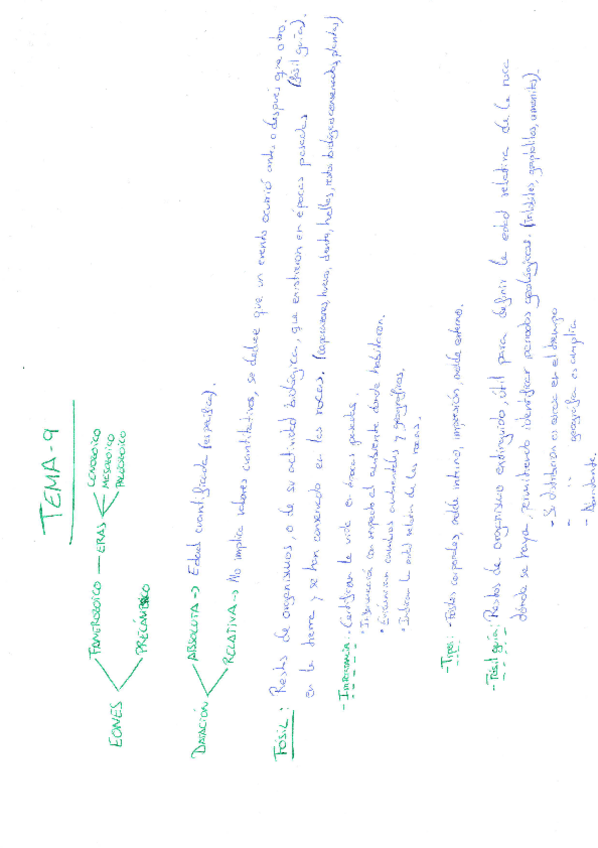 TEMA-9
EONES
FANEROZOICO — ERAS
CENOZOICO
MESOZOICO
PALEOZOICO
PRECÁMBRICO
DATACIÓN
ABSOLUTA -> Edad cuantificada (específica).
RELATIVA -> No implica valores cuantitativos, se deduce que un evento ocurrió antes o después que otro.
FÓSIL: Restos de organismos, o de su actividad biológica, que existieron en épocas pasadas (fósil guía).
en la tierra y se han conservado en las rocas. (caparazones, huesos, dientes, huellas, restos biológicos conservados, plantas)
- Importancia: Certifican la vida en épocas pasadas.
* Información con respecto al ambiente donde habitaron.
* Evidencian cambios ambientales y geográficos.
* Indican la edad relativa de las rocas.
- Tipos: - Fósiles corporales, molde interno, impresión, molde externo.
- Fósil guía: Restos de organismo extinguido, útil para definir la edad relativa de la roca
dónde se haya, permitiendo identificar periodos geológicos. (trilobites, graptolites, amonites).
- Su distribución es escasa en el tiempo
- " " geográfica es amplia
- Abundante.